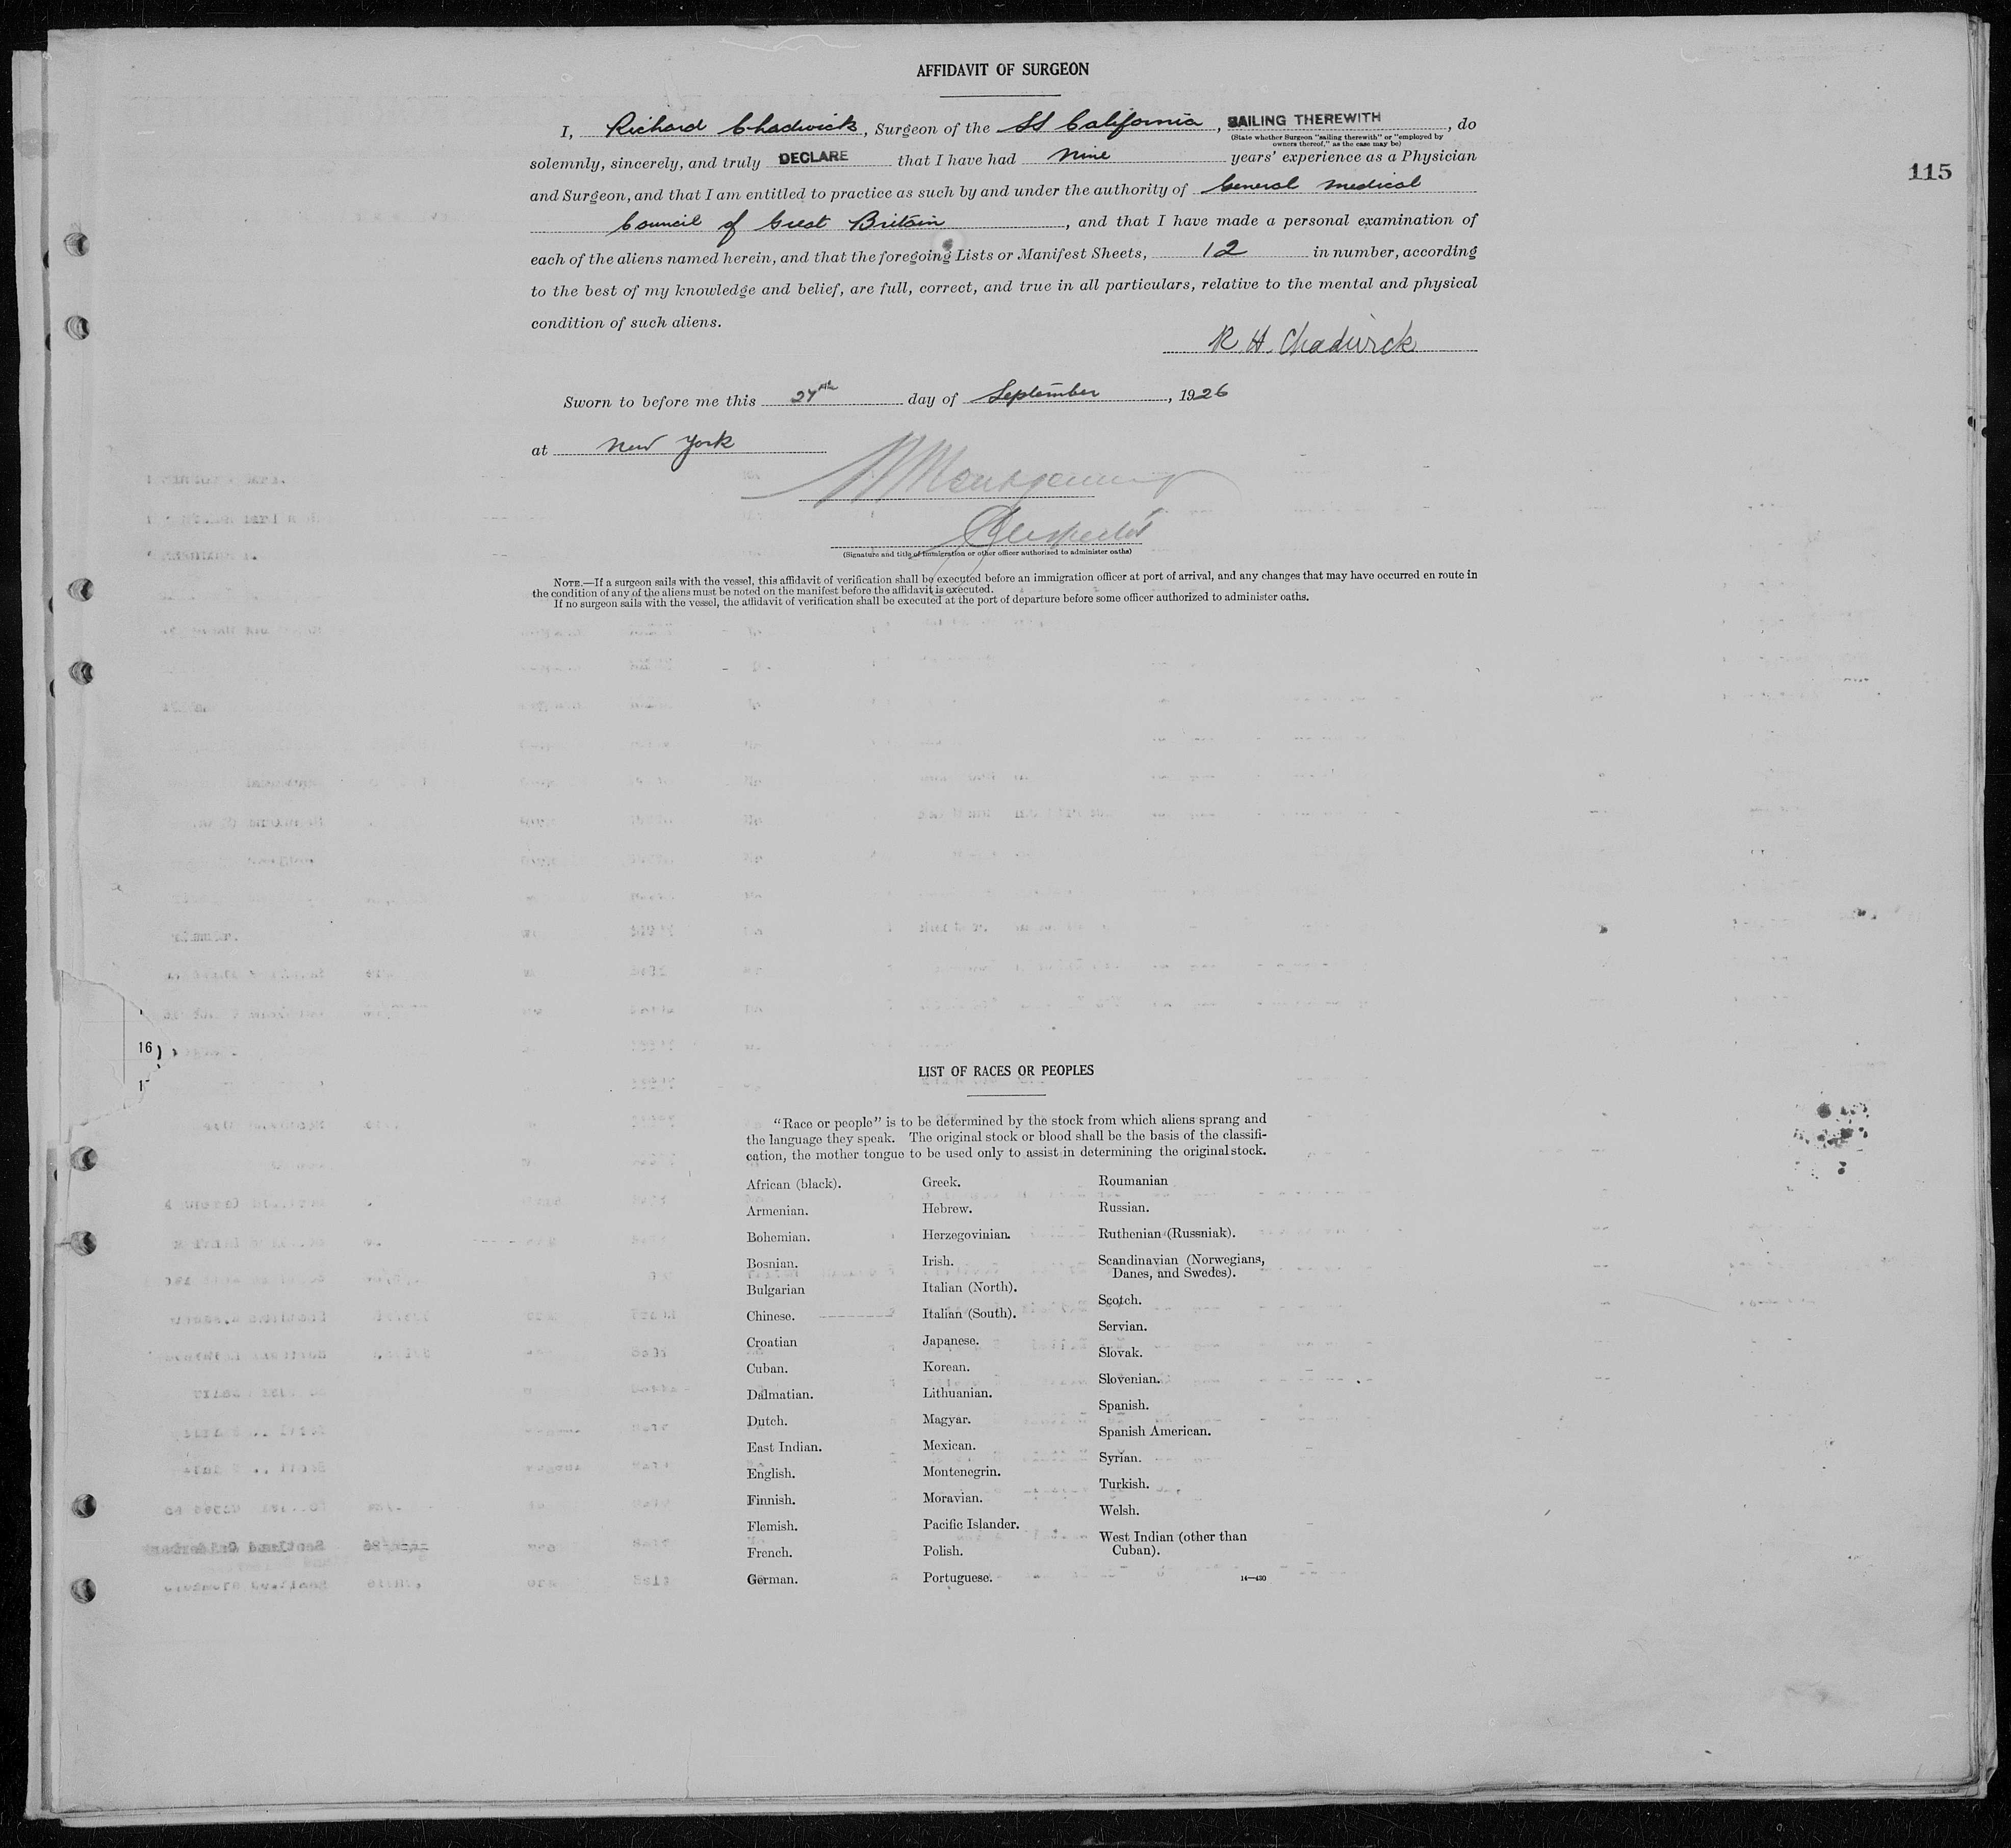 AFFIDAVIT OF SURGEON
I, Richard Chadwick, Surgeon of the SS California, SAILING THEREWITH, do
(State whether Surgeon "sailing therewith" or "employed by
owners thereof," as the case may be)
solemnly, sincerely, and truly DECLARE that I have had nine years' experience as a Physician
115
and Surgeon, and that I am entitled to practice as such by and under the authority of General medical
Council of Great Britain, and that I have made a personal examination of
each of the aliens named herein, and that the foregoing Lists or Manifest Sheets, 12 in number, according
to the best of my knowledge and belief, are full, correct, and true in all particulars, relative to the mental and physical
condition of such aliens.
R. H. Chadwick
Sworn to before me this 27th day of September, 1926
at New York
Montgomery
Inspector
(Signature and title of immigration or other officer authorized to administer oaths)
NOTE.—If a surgeon sails with the vessel, this affidavit of verification shall be executed before an immigration officer at port of arrival, and any changes that may have occurred en route in
the condition of any of the aliens must be noted on the manifest before the affidavit is executed.
If no surgeon sails with the vessel, the affidavit of verification shall be executed at the port of departure before some officer authorized to administer oaths.
16
LIST OF RACES OR PEOPLES
"Race or people" is to be determined by the stock from which aliens sprang and
the language they speak. The original stock or blood shall be the basis of the classifi-
cation, the mother tongue to be used only to assist in determining the original stock.
African (black).
Armenian.
Bohemian.
Bosnian.
Bulgarian
Chinese.
Croatian
Cuban.
Dalmatian.
Dutch.
East Indian.
English.
Finnish.
Flemish.
French.
German.
Greek.
Hebrew.
Herzegovinian.
Irish.
Italian (North).
Italian (South).
Japanese.
Korean.
Lithuanian.
Magyar.
Mexican.
Montenegrin.
Moravian.
Pacific Islander.
Polish.
Portuguese.
Roumanian
Russian.
Ruthenian (Russniak).
Scandinavian (Norwegians,
Danes, and Swedes).
Scotch.
Servian.
Slovak.
Slovenian.
Spanish.
Spanish American.
Syrian.
Turkish.
Welsh.
West Indian (other than
Cuban).
14—430